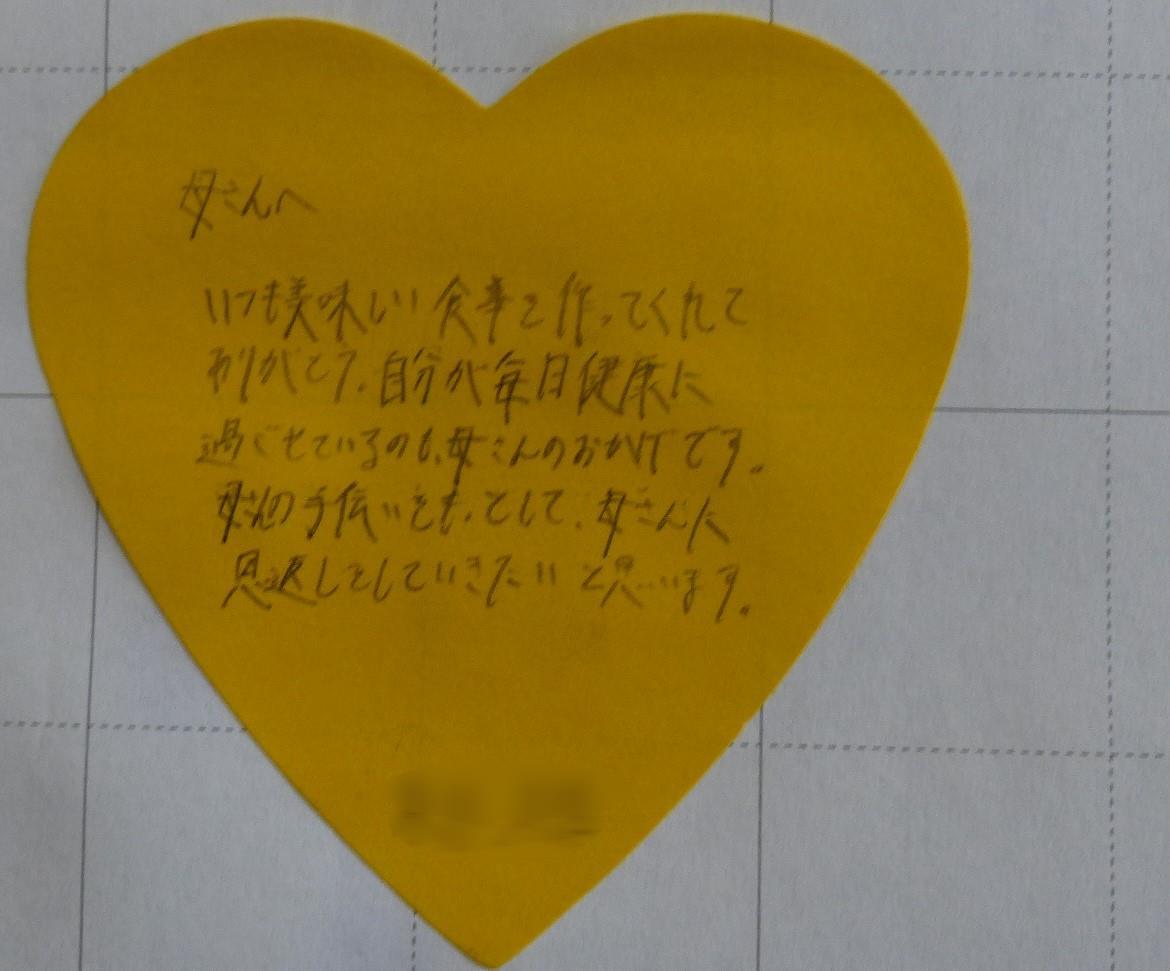 母さんへ
いつも美味しい食事を作ってくれて
ありがとう。自分が毎日健康に
過ごせているのも、母さんのおかげです。
母さんの手伝いをもっとして、母さんに
恩返しをしていきたいと思います。